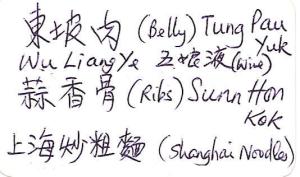 東坡肉 (Belly) Tung Pau Yuk
Wu Liang Ye 五粮液 (Wine)
蒜香骨 (Ribs) Sunn Hon Kok
上海炒粗麵 (Shanghai Noodles)